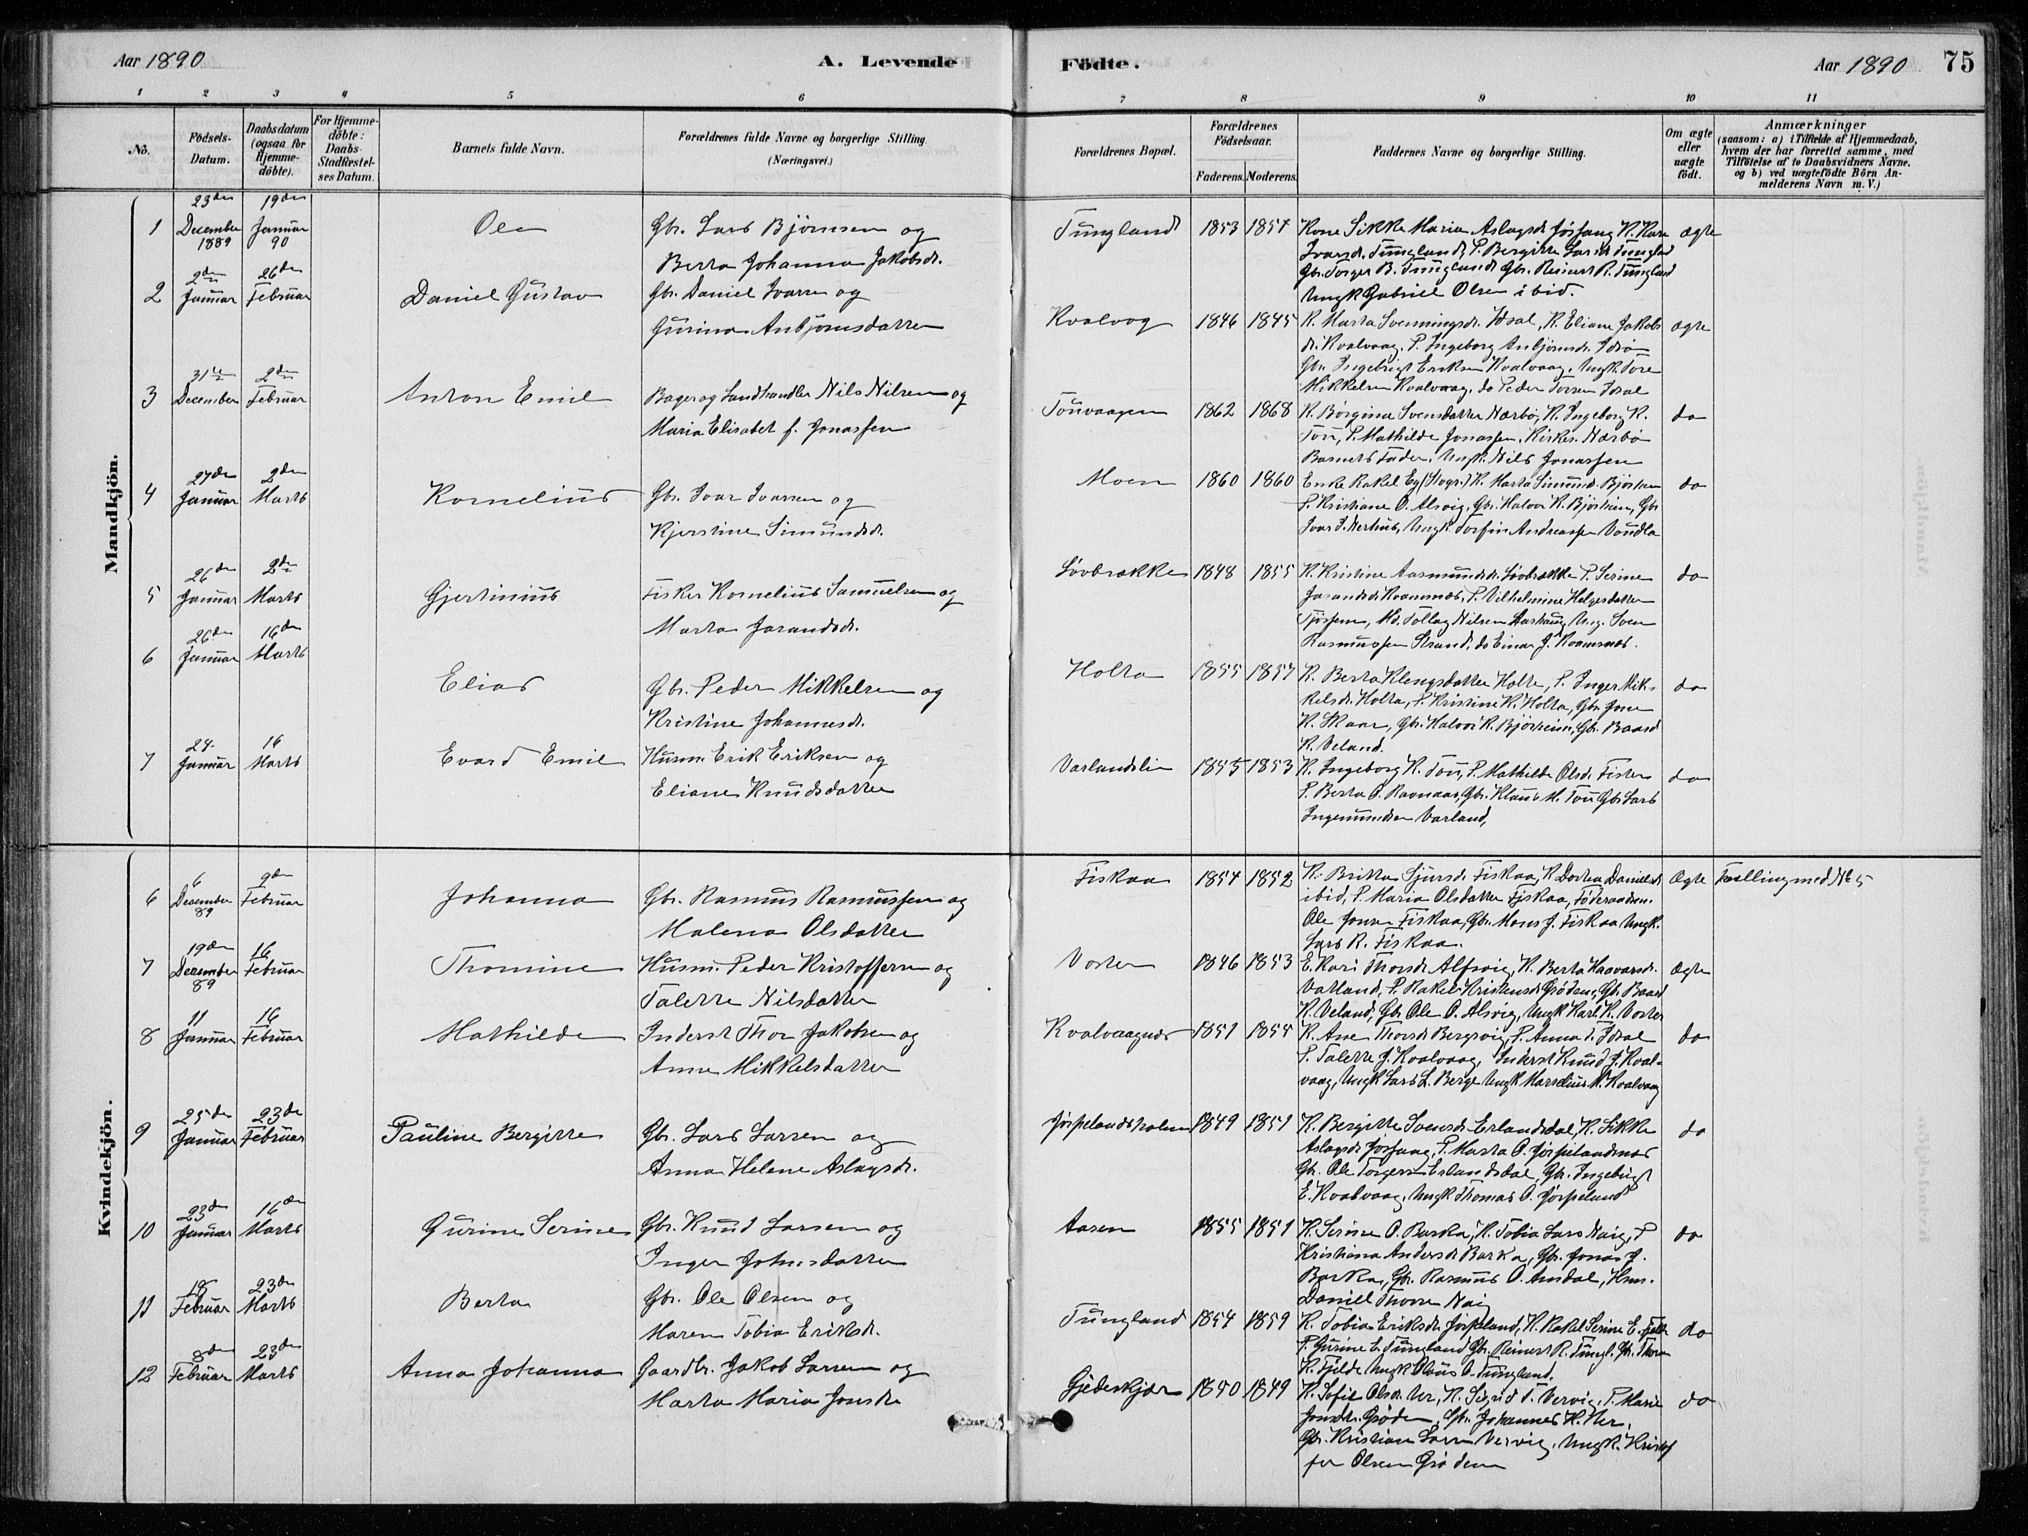 Aar 1890
A. Levende
Födte.
Aar 1890
75
1 2 3 4 5 6 7 8 9 10 11
No.
Födsels-Datum.
Daabsdatum (ogsaa for Hjemme-döbte).
For Hjemme-döbte: Daabs-Stadfæstel-ses Datum.
Barnets fulde Navn.
Forældrenes fulde Navne og borgerlige Stilling
(Næringsvei.)
Forældrenes Bopæl.
Forældrenes Födselsaar.
Faderens. Moderens.
Faddernes Navne og borgerlige Stilling.
Om ægte eller uægte födt.
Anmærkninger
(saasom: a) i Tilfælde af Hjemmedaab, hvem der har forrettet samme, med Tilföielse af to Daabsvidners Navne. og b) ved uægtefödte Börn An-melderens Navn m. V.)
Mandkjön.
1 23de December 1889 19de Januar 90 Ole Gbr. Lars Bjørnsen og
Berta Johanna Jakobsdr.
Tungland 1853 1854 Kone Sikke Maria Aslagsdr. Jøssang, K. Kare ægte
Ivarsd. Tungland, P. Bergitte Larsd. Tungland
Gbr. Torger B. Tungland Gbr. Reinert R. Tungland
Ungk Gabriel Olsen ibid.
2 2den Januar 26de Februar Daniel Gustav Gbr. Daniel Ivarsen og
Gurina Anbjørnsdatter
Kvalvog 1846 1845 K. Marta Svenningsdr. Idsal, K. Eliane Jakobs ægte
dr. Kvalvaag, P. Ingeborg Anbjørnsdr. Idsø
Gbr. Ingebrigt Eriksen Kvalvaag, Ungk Tore
Mikkelsen Kvalvaag, do Peder Torsen Idsal
3 31te December 2den Februar Anton Emil Bager og Landhandler Nils Nilsen og
Maria Elisabet f. Jonassen
Touvaagen 1862 1868 K. Børgina Svensdatter Nærbø, K. Ingeborg K. do
Tou, P. Mathilde Jonassen, Kirkes. Nærbø
Barnets Fader, Ungk. Nils Jonassen
4 27de Januar 2den Marts Kornelius Gbr. Ivar Ivarsen og
Kjerstine Simundsdr.
Moen 1860 1860 Enke Rakel K. Marta Simunds. Bjørheim do
P. Kristiane O. Alsvig, Gbr. Halvor K. Bjørheim, Gbr
Ivar J. Nerhus, Ungk. Torfin Andreassen Voudla
5 26de Januar 2den Marts Gjertinius Fisker Kornelius Samuelsen og
Marta Jorandsdr.
Løvbrække 1848 1855 K. Kristine Aasmundsdr. Løvbrække P. Serine do
P. Vilhelmine Helgesdatter
Tjøssem, Md. Tollag Nilsen Aarhaug, Ung. Sven
Rasmussen Strand, do Einar J.
6 26de Januar 16de Marts Elias Gbr. Peder Mikkelsen og
Kristine Johannesdr.
Holta 1855 1857 K. Berta Klengsdatter Holte, P. Inger Mik- do
kelsdr. Holta, P. Kristine K. Holta, Gbr. Jone
K. Skaar, Gbr. Halvor K. Bjørheim, Gbr. Baard
K. Veland.
7 24 Januar 16 Marts Evard Emil Husm. Erik Eriksen og
Eliane Knudsdatter
Varlandslien 1855 1853 K. Ingeborg K. Tou, P. Mathilde Olsdr. Fister do
P. Berta O. Ravnaas, Gbr. Klaus M. Tou Gbr. Lars
Ingemundsen Varland,
Kvindekjön.
6 6 December 89 9de Februar Johanna Gbr. Rasmus Rasmussen og
Malena Olsdatter
Fiskaa 1854 1852 K. Britta Sjursd. Fiskaa, K Dortea Danielsdr Ægte Tvilling med No 5
ibid, P. Maria Olsdatter Fiskaa, Føderaadsm.
Ole Jonsen Fiskaa, Gbr. Mons J. Fiskaa Ungk.
Lars R. Fiskaa.
7 19de December 89 16 Februar Thomine Husm. Peder Kristoffersen og
Talette Nilsdatter
Voster 1846 1853 E. Kari Thorsdr. Alfsvig, K. Berta Haavarsdr. Ægte
Vatland, P. Rakel Kristensdr. Grødem, Gbr. Baard
K. Veland, Gbr. Ole O. Alsvig, Ungk Karl K. Voster
8 11 Januar 16 Februar Mathilde Inderst Thor Jakobsen og
Anne Mikkelsdatter
Kvalvaagnæs 1851 1855 K. Ane Thorsdr Bergsvig, P. Anna T. Idsal do
P. Talette J. Kvalvaag Inderst Knud J. Kval-
vaag, Ungk Lars L. Berge Ungk Marselius M. Kvalvaag
9 25de Januar 23de Februar Pauline Bergitte Gbr. Lars Larsen og
Anna Helene Aslagsdr.
Jørpelandsholmen 1849 1851 K. Bergitte Svensdr. Erlandsdal, K. Sikke do
Aslagsdr Jøssang, P. Marta O. Jørpelandsnæs
Gbr. Ole Torgersen Erlandsdal, Gbr. Ingebrigt
E. Kvalvaag, Ungk Thomas O. Jørpeland
10 23de Januar 16de Marts Gurine Serine Gbr. Knud Larsen og
Inger Johnsdatter
Aasen 1855 1851 K. Serine O. Barka, K. Tobia Lars Naig, P do
Kristiana Andersdr Barka, Gbr. Jonas J.
Barka, Gbr. Rasmus O. Amdal, Hsm.
Daniel Thorsen Naig
11 18 Februar 23de Marts Berta Gbr. Ole Olsen og
Maren Tobia Eriksdr.
Tungland 1854 1859 K. Tobia Eriksdr Jørpeland, K. Rakel Serine E. do
P. Gurine E. Tungland Gbr. Reinert R. Tungl. Gbr. Thore
K. Fjelde Ungk Olaus O. Tungland.
12 8de Februar 23de Marts Anna Johanna Gaardbr. Jakob Larsen og
Marta Maria Jonsdr
Gjederkjær 1850 1849 K. Sofie Olsdr. Ur, K. Sigrid T. Vervig, P. Marie do
Jonsdr. Grødem, Gbr. Johannes K. Ur,
Gbr. Kristian Larsen Vervig, Ungk. Kristof
fer Olsen Grødem